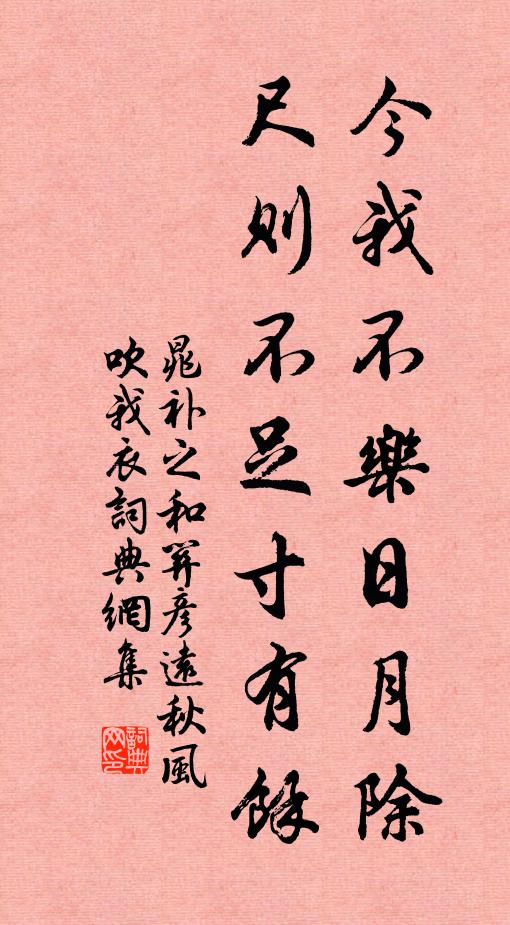 今我不樂日月除
尺则不足寸有餘
晁补之和關彥遠秋風
吹我衣詞典網集
詞典网印